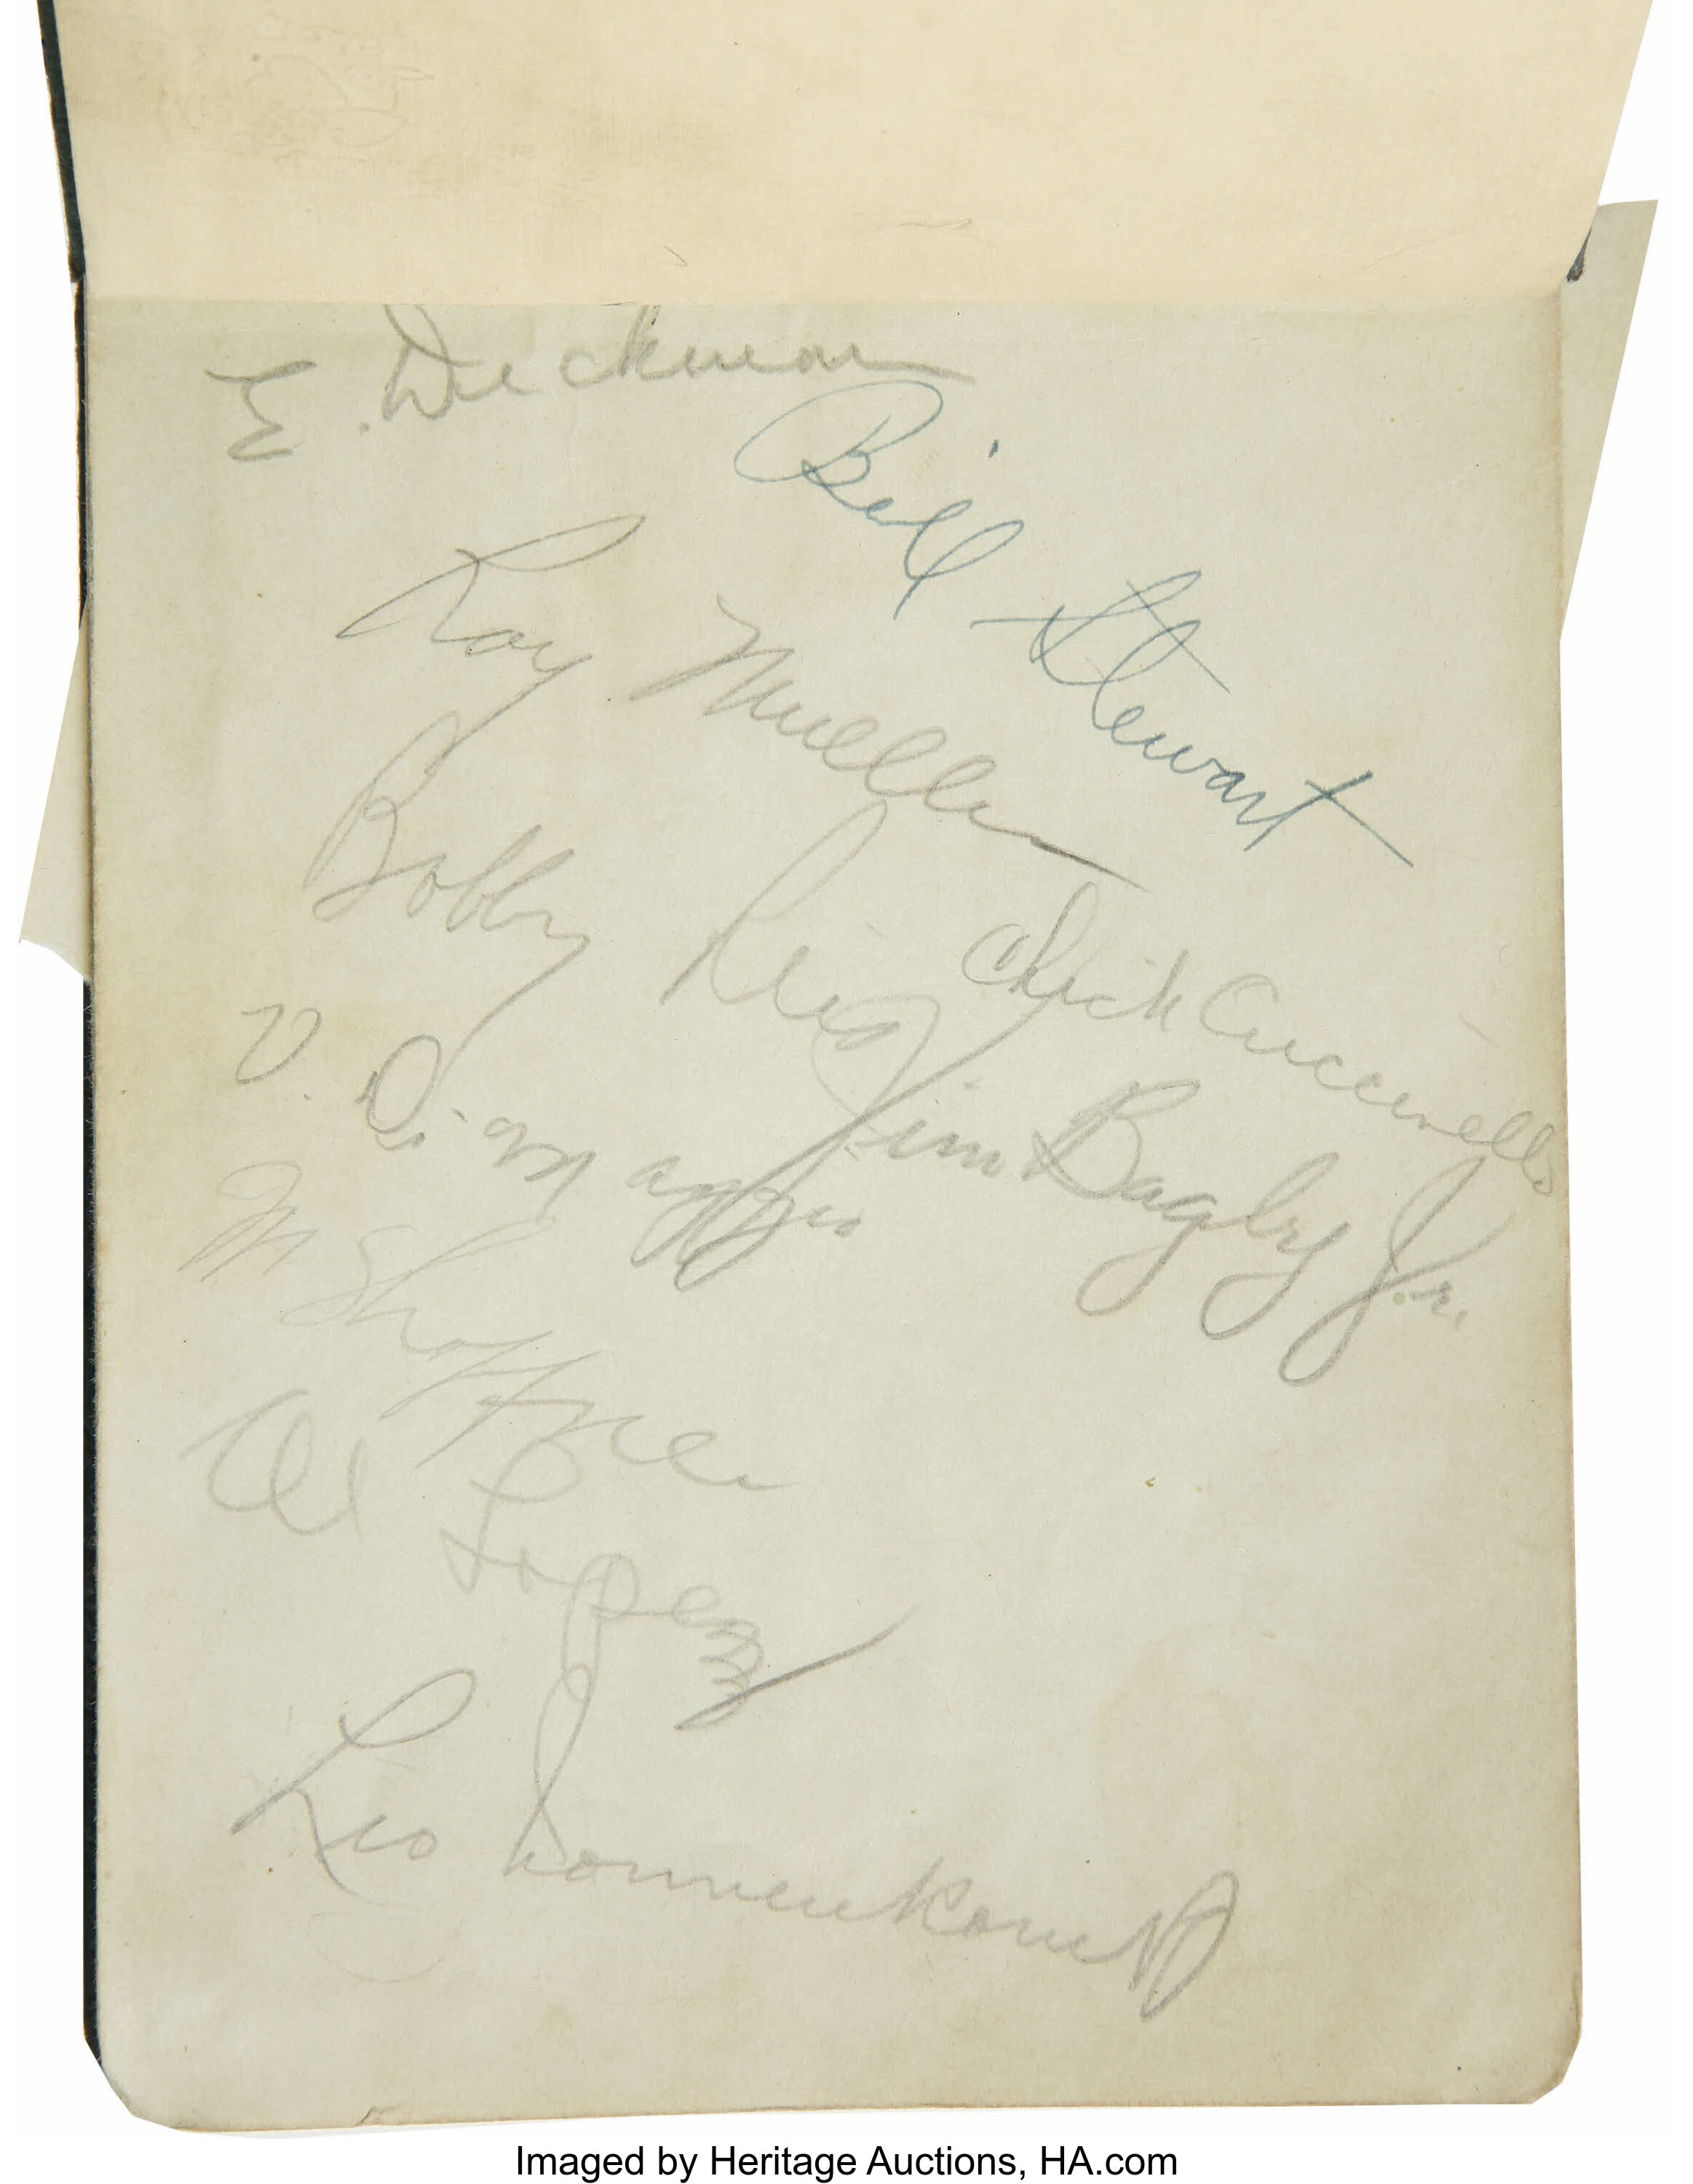 E. Dieckman
Bill Stewart
Ray Mueller
Bobby Reis
Chick Cuccinello
V. DiMaggio
Jim Bagby Jr.
M Shoffner
Al Lopez
Leo
Imaged by Heritage Auctions, HA.com